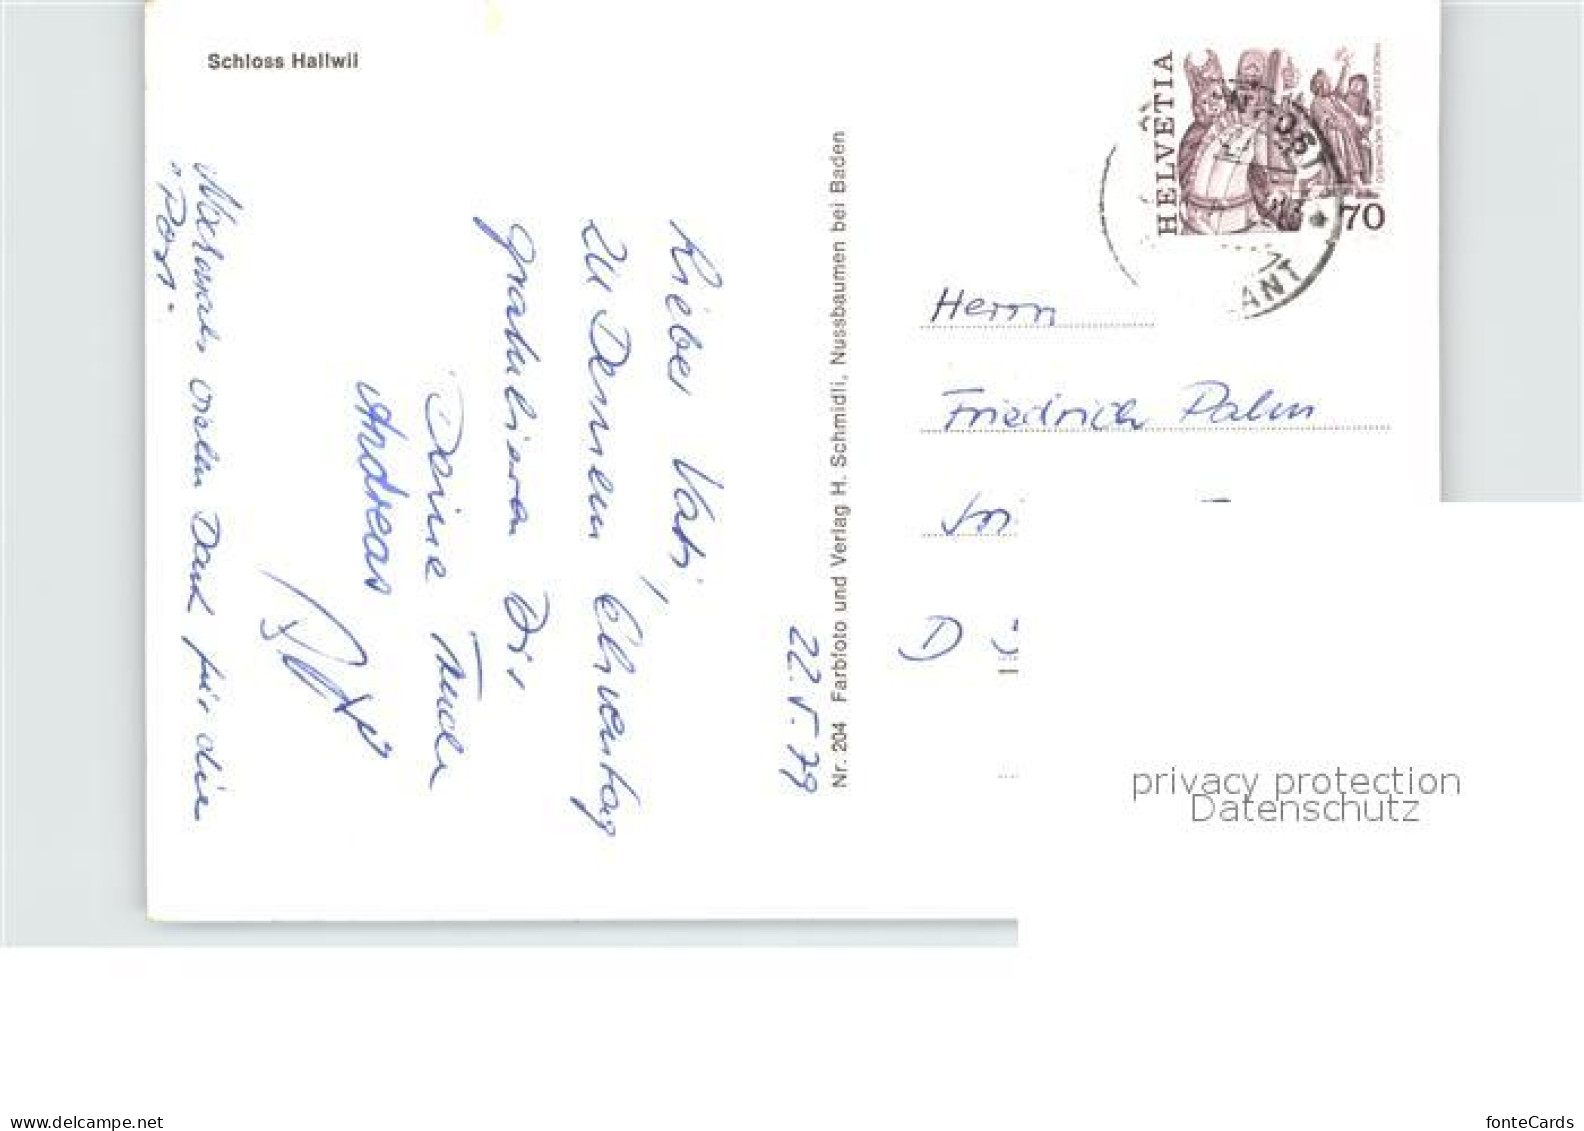 Schloss Hallwil
22. V. 79
Lieber Vati,
zu Deinem Ehrentag
gratulieren Dir
Deine Trudi
Andreas
Nochmals vielen Dank für die
"Post".
Nr. 204 Farbfoto und Verlag H. Schmidli, Nussbaumen bei Baden
HELVETIA
70
ANT
Herrn
Friedrich Palm
D
privacy protection
Datenschutz
www.delcampe.net
fonteCards